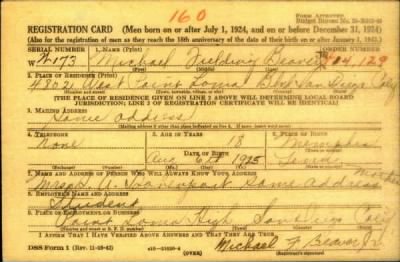 160
FORM APPROVED
REGISTRATION CARD (Men born on or after July 1, 1924, and on or before December 31, 1924)
(Also for the registration of men as they reach the 18th anniversary of the date of their birth on or after January 1, 1925.)
SERIAL NUMBER 1. NAME (Print) ORDER NUMBER
W 173 Michael Fielding Beaver
(First) (Middle) (Last)
2. PLACE OF RESIDENCE (Print)
4802 Loma San Diego Calif
(Number and street) (Town, township, village, or city) (County) (State)
[THE PLACE OF RESIDENCE GIVEN ON LINE 2 ABOVE WILL DETERMINE LOCAL BOARD
JURISDICTION; LINE 2 OF REGISTRATION CERTIFICATE WILL BE IDENTICAL]
3. MAILING ADDRESS
Same address
(Mailing address if other than place indicated on line 2. If same insert word same)
4. TELEPHONE 5. AGE IN YEARS 6. PLACE OF BIRTH
None 18 Memphis
DATE OF BIRTH
Aug 6th 1925 Tenn
(Exchange) (Number) (Mo.) (Day) (Yr.) (State or country)
7. NAME AND ADDRESS OF PERSON WHO WILL ALWAYS KNOW YOUR ADDRESS
Mother
Davenport Same address
8. EMPLOYER'S NAME AND ADDRESS
Student
9. PLACE OF EMPLOYMENT OR BUSINESS
Point Loma High San Diego Calif
(Number and street or R. F. D. number) (Town) (County) (State)
I AFFIRM THAT I HAVE VERIFIED ABOVE ANSWERS AND THAT THEY ARE TRUE.
DSS Form 1 (OVER) Michael F Beaver Jr.